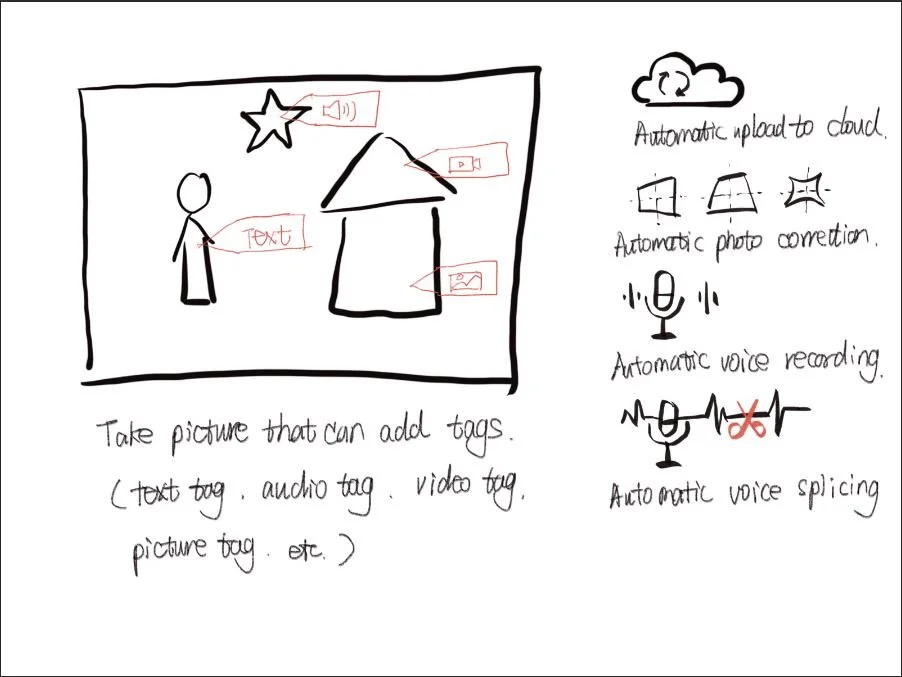 Text
Take picture that can add tags.
(text tag. audio tag. video tag.
picture tag. etc.)
Automatic upload to cloud.
Automatic photo correction.
Automatic voice recording.
Automatic voice splicing